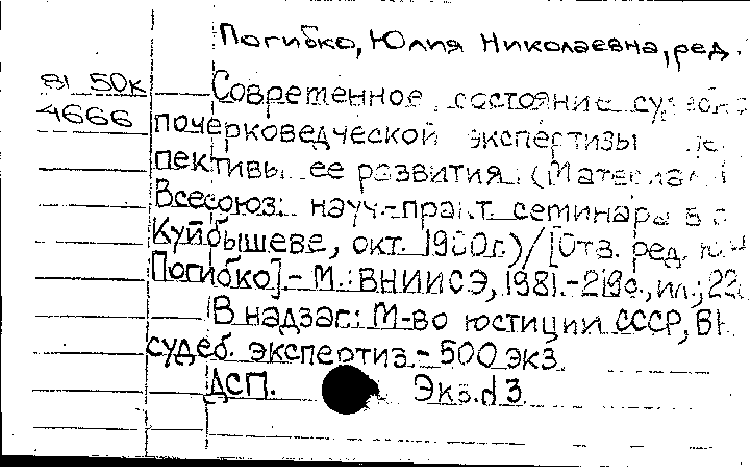 Погибко, Юлия Николаевна, ред.
81 50к Современное состояние судеб
4666 почерковедческой экспертизы
пективы ее развития: (Материал
Всесоюз. науч.-практ. семинара в
Куйбышеве, окт. 1980г.)/[Отв. ред.
Погибко].- М.: ВНИИСЭ, 1981.-219с., ил.; 22
В надзаг.: М-во юстиции СССР, В
судеб. экспертиз.- 500 экз.
ДСП. Экз. 3